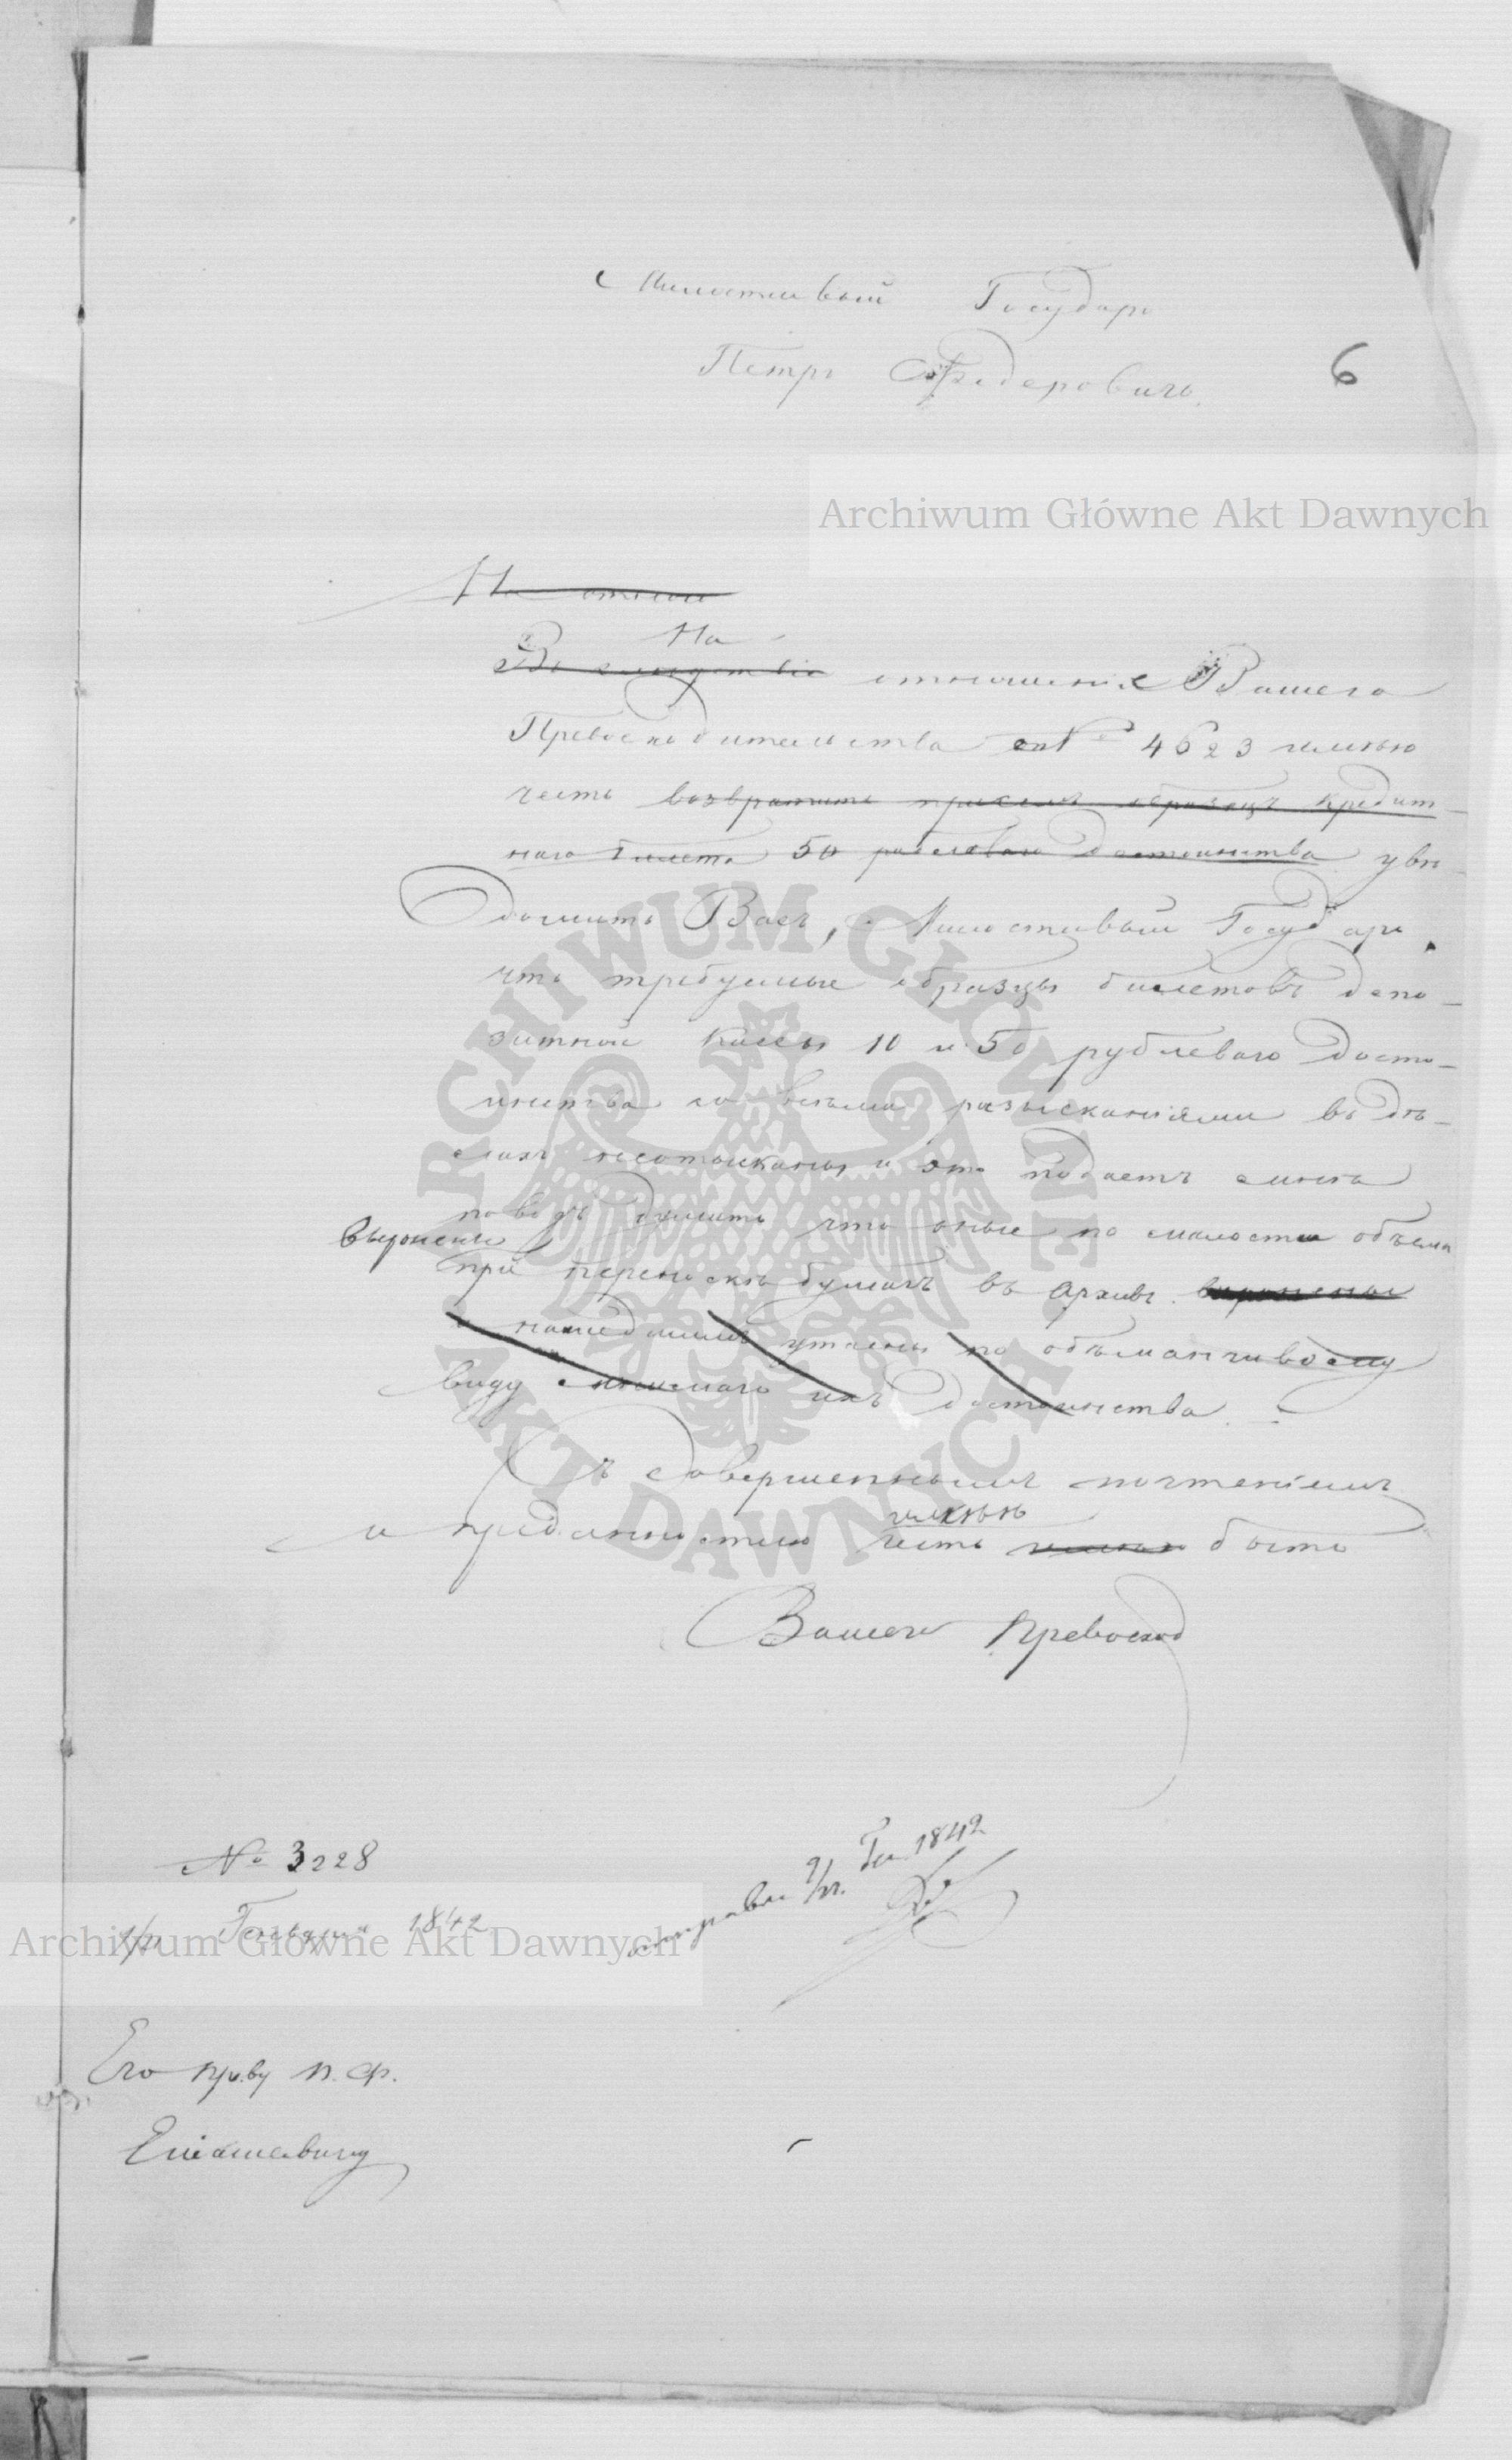 Милостивый Государь
Петръ Федеровичъ.
6
Archiwum Główne Akt Dawnych
На отнош
На
Въ слѣдствіе отношение Вашего
Превосходительства № 4623 имѣю
честь возвратить при семъ образецъ кредит-
наго билета 50 рублеваго достоинства увѣ-
домить Васъ, Милостивый Государь,
что требуемые образцы билетовъ депо-
зитной кассы 10 и 50 рублеваго досто-
инства со всѣми разысканіями въ дѣ-
лахъ неотысканы и это подаетъ мнѣ
поводъ думать что оные по малости объема
выронены
при переноскѣ бумагъ въ Архивъ выронены
нашедшимъ утаены по обманчивому
виду мнимаго ихъ достоинства.
Съ совершеннымъ почтеніемъ
имѣю
и преданностію честь имѣю быть
Вашего Превосход
№ 3228
9/21 Генваря 1842
отправл 9/21 Ген 1842
Archiwum Główne Akt Dawnych
Его пр.ву П. Ф.
ARCHIWUM GŁÓWNE AKT DAWNYCH